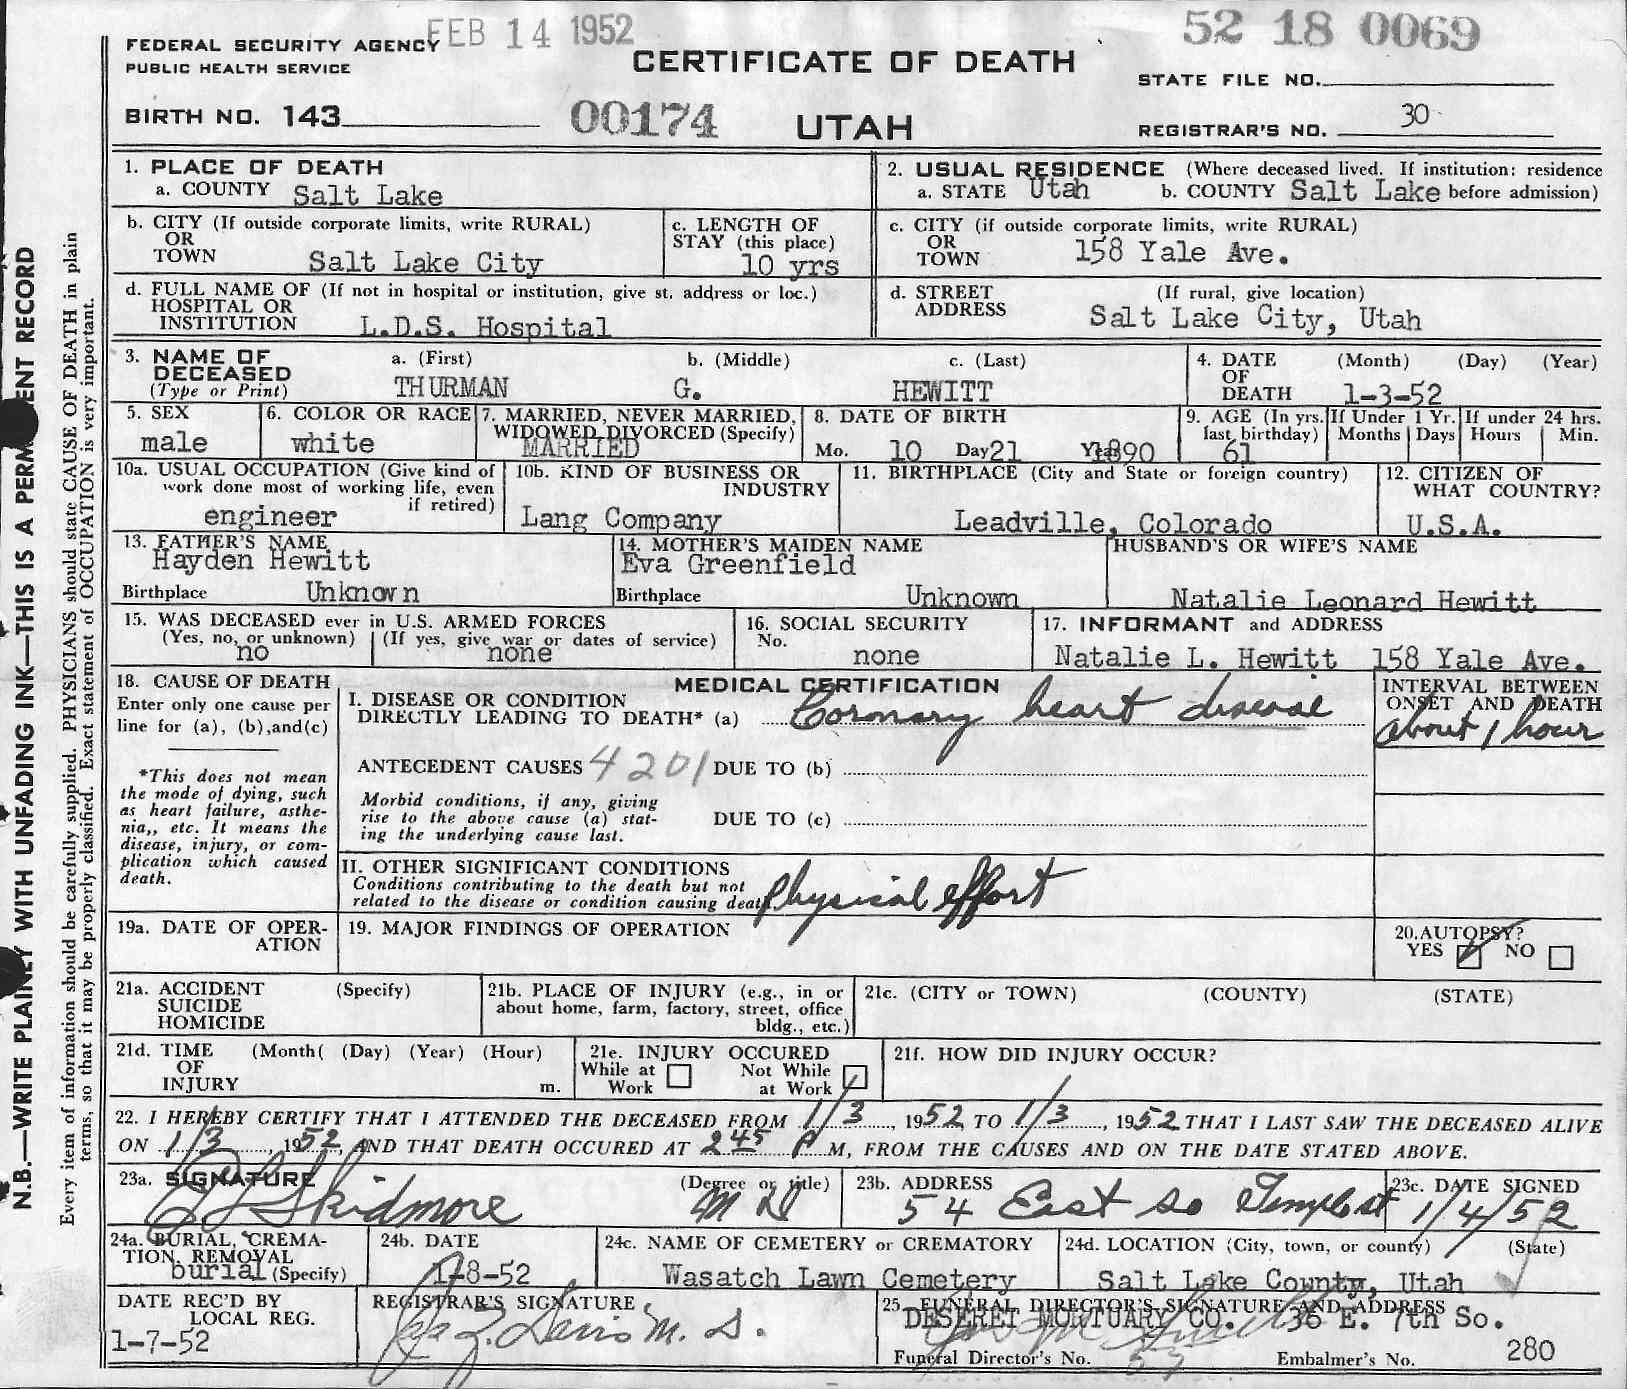 FEB 14 1952
52 18 0069
FEDERAL SECURITY AGENCY
PUBLIC HEALTH SERVICE
CERTIFICATE OF DEATH
STATE FILE NO.
BIRTH NO. 143
00174
UTAH
REGISTRAR'S NO. 30
N.B.—WRITE PLAINLY WITH UNFADING INK—THIS IS A PERMANENT RECORD
Every item of information should be carefully supplied. PHYSICIANS should state CAUSE OF DEATH in plain
terms, so that it may be properly classified. Exact statement of OCCUPATION is very important.
1. PLACE OF DEATH
a. COUNTY Salt Lake
2. USUAL RESIDENCE (Where deceased lived. If institution: residence
a. STATE Utah b. COUNTY Salt Lake before admission)
b. CITY (If outside corporate limits, write RURAL)
OR
TOWN Salt Lake City
c. LENGTH OF
STAY (this place)
10 yrs
c. CITY (if outside corporate limits, write RURAL)
OR
TOWN 158 Yale Ave.
d. FULL NAME OF (If not in hospital or institution, give st. address or loc.)
HOSPITAL OR
INSTITUTION L.D.S. Hospital
d. STREET (If rural, give location)
ADDRESS Salt Lake City, Utah
3. NAME OF a. (First) b. (Middle) c. (Last)
DECEASED
(Type or Print) THURMAN G. HEWITT
4. DATE (Month) (Day) (Year)
OF
DEATH 1-3-52
5. SEX
male
6. COLOR OR RACE
white
7. MARRIED, NEVER MARRIED,
WIDOWED DIVORCED (Specify)
MARRIED
8. DATE OF BIRTH
Mo. 10 Day 21 Year 1890
9. AGE (In yrs. last birthday) 61
If Under 1 Yr. Months Days
If under 24 hrs. Hours Min.
10a. USUAL OCCUPATION (Give kind of
work done most of working life, even
if retired)
engineer
10b. KIND OF BUSINESS OR
INDUSTRY
Lang Company
11. BIRTHPLACE (City and State or foreign country)
Leadville, Colorado
12. CITIZEN OF
WHAT COUNTRY?
U.S.A.
13. FATHER'S NAME
Hayden Hewitt
Birthplace Unknown
14. MOTHER'S MAIDEN NAME
Eva Greenfield
Birthplace Unknown
HUSBAND'S OR WIFE'S NAME
Natalie Leonard Hewitt
15. WAS DECEASED ever in U.S. ARMED FORCES
(Yes, no, or unknown) (If yes, give war or dates of service)
no none
16. SOCIAL SECURITY
No.
none
17. INFORMANT and ADDRESS
Natalie L. Hewitt 158 Yale Ave.
18. CAUSE OF DEATH
Enter only one cause per
line for (a), (b),and(c)
*This does not mean
the mode of dying, such
as heart failure, asthe-
nia,, etc. It means the
disease, injury, or com-
plication which caused
death.
MEDICAL CERTIFICATION
I. DISEASE OR CONDITION
DIRECTLY LEADING TO DEATH* (a) Coronary heart disease
INTERVAL BETWEEN
ONSET AND DEATH
about 1 hour
ANTECEDENT CAUSES 4201 DUE TO (b)
Morbid conditions, if any, giving
rise to the above cause (a) stat-
ing the underlying cause last.
DUE TO (c)
II. OTHER SIGNIFICANT CONDITIONS
Conditions contributing to the death but not
related to the disease or condition causing death.
physical effort
19a. DATE OF OPER-
ATION
19. MAJOR FINDINGS OF OPERATION
20. AUTOPSY?
YES NO
21a. ACCIDENT (Specify)
SUICIDE
HOMICIDE
21b. PLACE OF INJURY (e.g., in or
about home, farm, factory, street, office
bldg., etc.)
21c. (CITY or TOWN) (COUNTY) (STATE)
21d. TIME (Month( (Day) (Year) (Hour)
OF
INJURY m.
21e. INJURY OCCURED
While at Not While
Work at Work
21f. HOW DID INJURY OCCUR?
22. I HEREBY CERTIFY THAT I ATTENDED THE DECEASED FROM 1/3, 1952 TO 1/3, 1952 THAT I LAST SAW THE DECEASED ALIVE
ON 1/3, 1952, AND THAT DEATH OCCURED AT 2 45 P M, FROM THE CAUSES AND ON THE DATE STATED ABOVE.
23a. SIGNATURE (Degree or title)
Skidmore M D
23b. ADDRESS
54 East So Temple st
23c. DATE SIGNED
1/4/52
24a. BURIAL, CREMA-
TION, REMOVAL
burial (Specify)
24b. DATE
1-8-52
24c. NAME OF CEMETERY or CREMATORY
Wasatch Lawn Cemetery
24d. LOCATION (City, town, or county) (State)
Salt Lake County, Utah
DATE REC'D BY
LOCAL REG.
1-7-52
REGISTRAR'S SIGNATURE
M. D.
25. FUNERAL DIRECTOR'S SIGNATURE AND ADDRESS
DESERET MORTUARY CO. 36 E. 7th So.
Funeral Director's No. Embalmer's No. 280